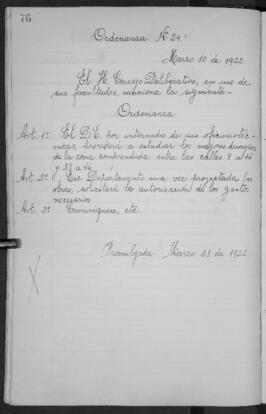 76
Ordenanza Nº 24
Marzo 10 de 1922.
El H. Concejo Deliberativo, en uso de
sus facultades, sanciona la siguiente-
Ordenanza
Art. 1º El D.E. por intermedio de sus oficinas téc-
nicas, procederá a estudiar los mejores desagües
de la zona comprendida entre las calles 8 a
y 37 a 40.
Art. 2º Ese Departamento una vez proyectada las
obras, solicitará la autorización de los gastos
necesarios
Art. 3º Comuníquese, etc.
Promulgada: Marzo 13 de 1922